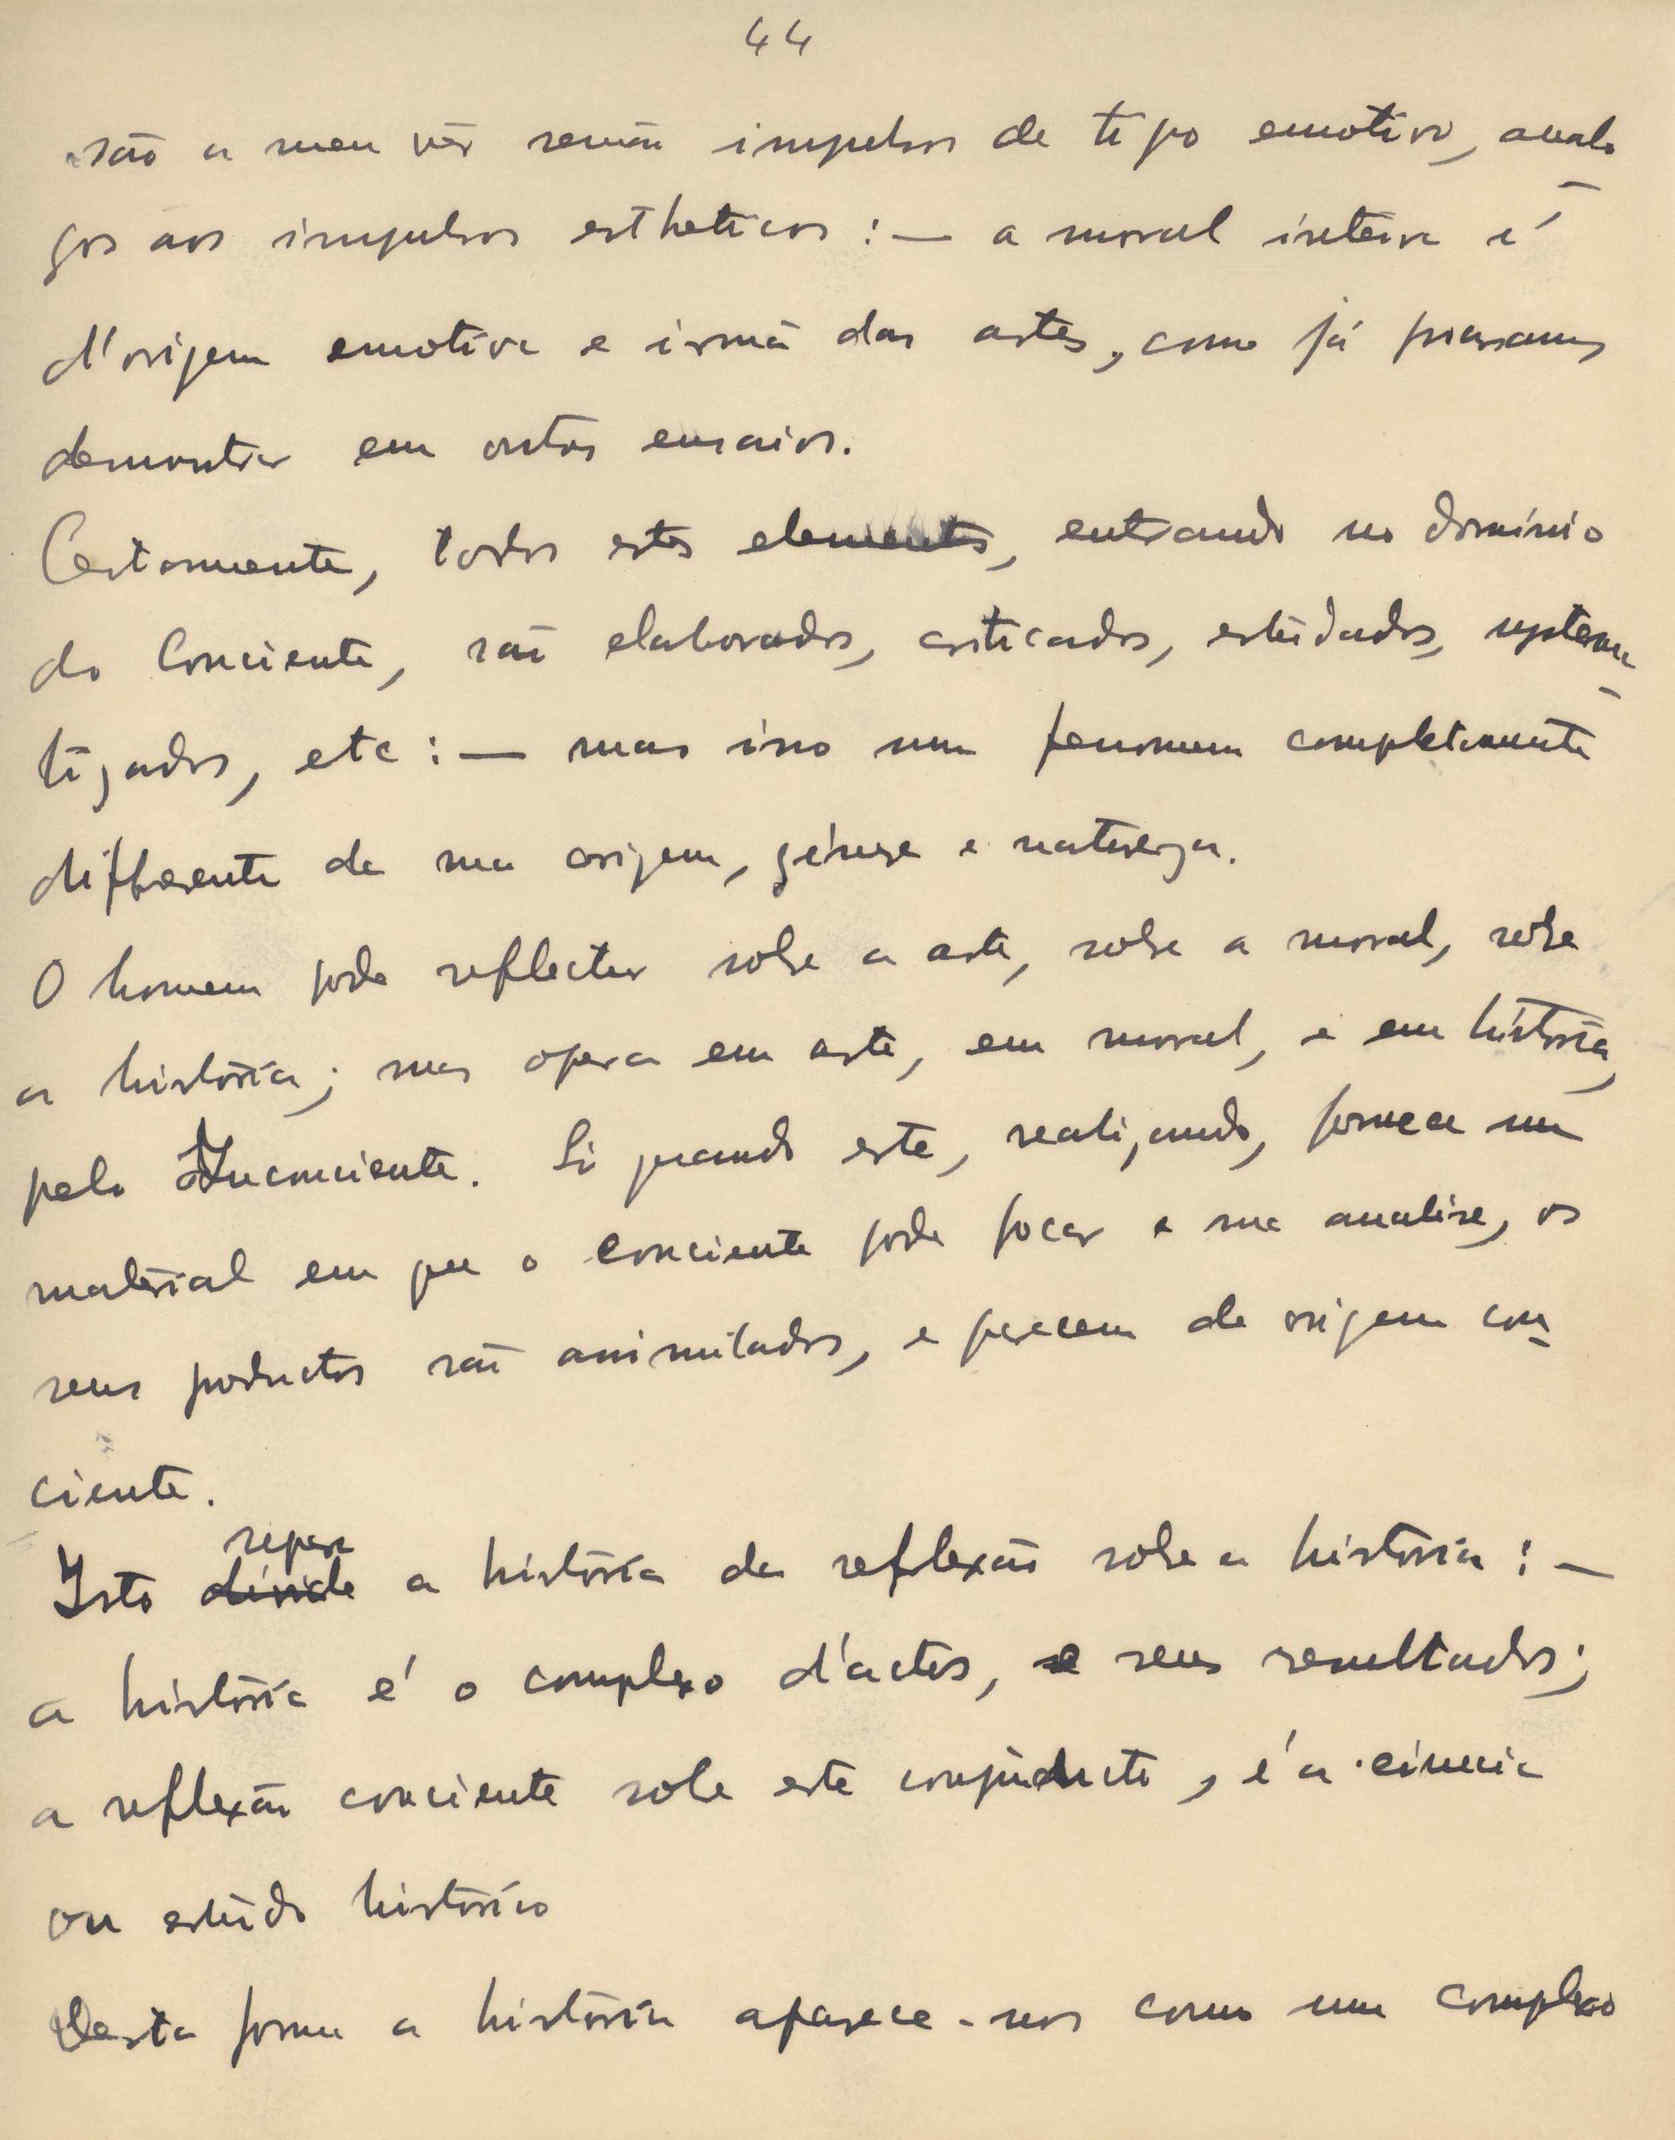 44
são a meu vêr senão impulsos de tipo emotivo, analo
gos aos impulsos estheticos : — a moral inteira é
d'origem emotiva e irmã das artes, como já pensamos
demontrar em outros ensaios.
Certamente, todos estes elementos, entrando no dominio
do Conciente, são elaborados, criticados, estudados, systema-
tizados, etc : — mas isso num fenomeno completamente
differente de sua origem, génese e natureza.
O homem pode reflectir sobre a arte, sobre a moral, sobre
a história; mas opera em arte, em moral, e em história,
pelo Inconciente. Só quando este, realizando, fornece um
material em que o conciente pode focar a sua analise, os
seus productos são assimilados, e parecem de origem con-
ciente.
separa
Isto divide a história da reflexão sobre a história : —
a história é o complexo d'actos, e seus resultados;
a reflexão conciente sobre este conjuncto, é a ciencia
ou estudo histórico
Desta forma a história aparece-nos como um complexo